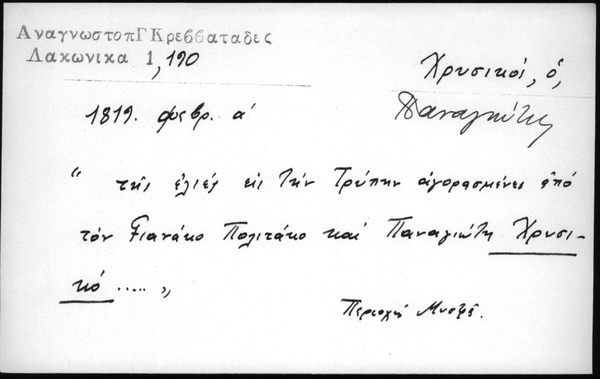 ΑναγνωστοπΓΚρεββαταδες
Λακωνικα 1,190
Χρυσικός, ὁ,
Παναγιώτης
1819. φεβρ. α'
" τῆς ἐλιές εις τὴν Τρύπην αγορασμένες ἀπό
τὸν Γιανάκο Πολιτάκο καί Παναγιώτη Χρυσι-
κό ..... "
Περιοχή Μυστρᾶ.